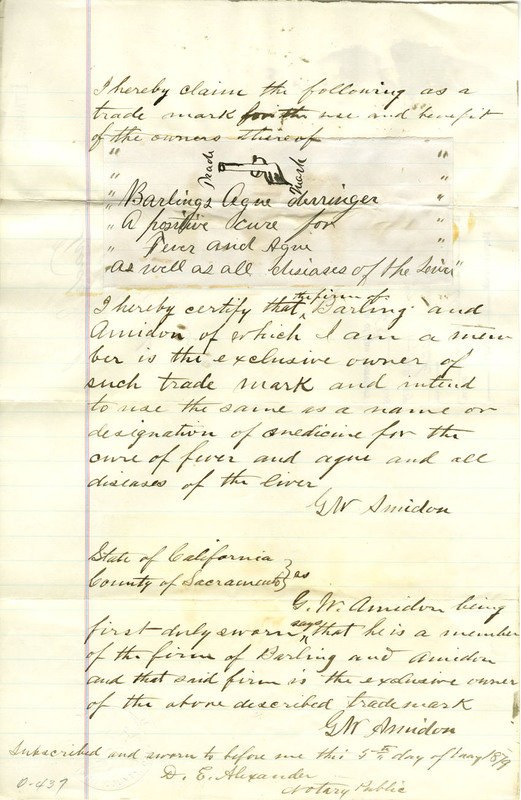 I hereby claim the following as a
trade mark for the use and benefit
of the owners thereof
" Trade Mark "
" Barlings Ague derringer "
" A positive cure for "
" Fever and Ague "
as well as all diseases of the Liver"
I hereby certify that the firm of Barling and
Amidon of which I am a mem
ber is the exclusive owner of
such trade mark and intend
to use the same as a name or
designation of medicine for the
cure of fever and ague and all
diseases of the liver
G W Amidon
State of California }
County of Sacramento } ss
G. W. Amidon being
first duly sworn says that he is a member
of the firm of Barling and Amidon
and that said firm is the exclusive owner
of the above described trademark
G W Amidon
Subscribed and sworn to before me this 5th day of 1879
D. E. Alexander
Notary Public
0-439